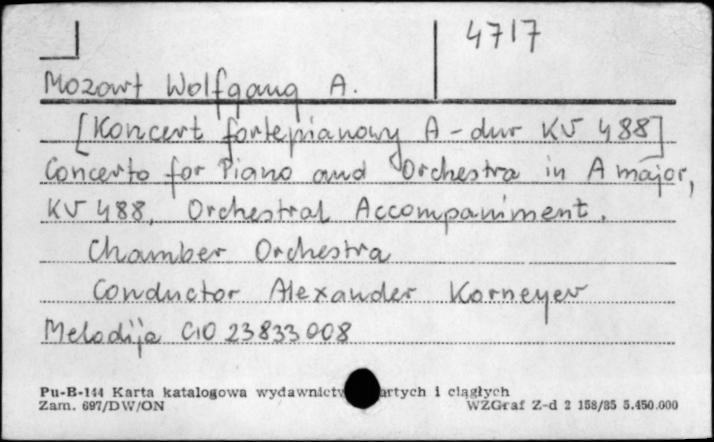 4717
Mozart Wolfgang A.
[Koncert fortepianowy A-dur KV 488]
Concerto for Piano and Orchestra in A major,
KV 488, Orchestral Accompaniment.
Chamber Orchestra
Conductor Alexander Korneyev
Melodija C10 23833 008
Pu-B-144 Karta katalogowa wydawnictw artych i ciągłych
Zam. 697/DW/ON WZGraf Z-d 2 158/85 5.450.000